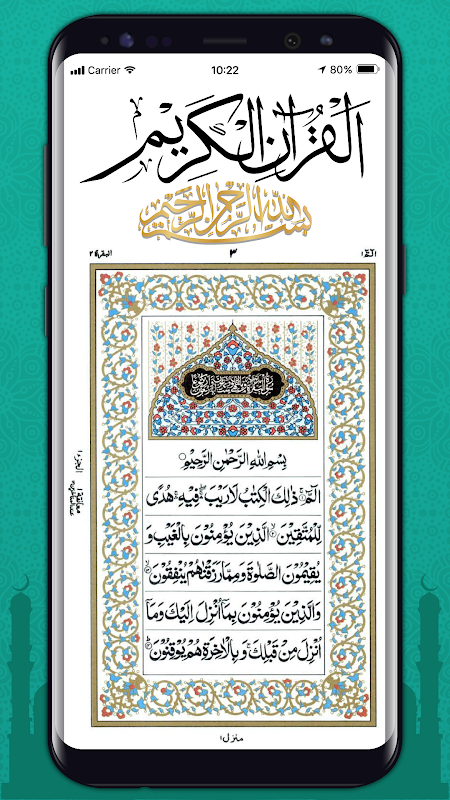 Carrier 10:22 80%
القرآن الكريم
بسم الله الرحمن الرحيم
البقرة ٢ ٣ الٓمّٓ ١
بِسْمِ اللهِ الرَّحْمٰنِ الرَّحِيْمِ
الٓمّٓ ۚ ذٰلِكَ الْكِتٰبُ لَا رَيْبَ ۛ فِيْهِ ۛ هُدًى
لِّلْمُتَّقِيْنَ ۙ الَّذِيْنَ يُؤْمِنُوْنَ بِالْغَيْبِ وَ
يُقِيْمُوْنَ الصَّلٰوةَ وَمِمَّا رَزَقْنٰهُمْ يُنْفِقُوْنَ ۙ
وَالَّذِيْنَ يُؤْمِنُوْنَ بِمَاۤ اُنْزِلَ اِلَيْكَ وَمَاۤ
اُنْزِلَ مِنْ قَبْلِكَ ۚ وَبِالْاٰخِرَةِ هُمْ يُوْقِنُوْنَ ؕ
الجزء ١
معانقة
منزل ١